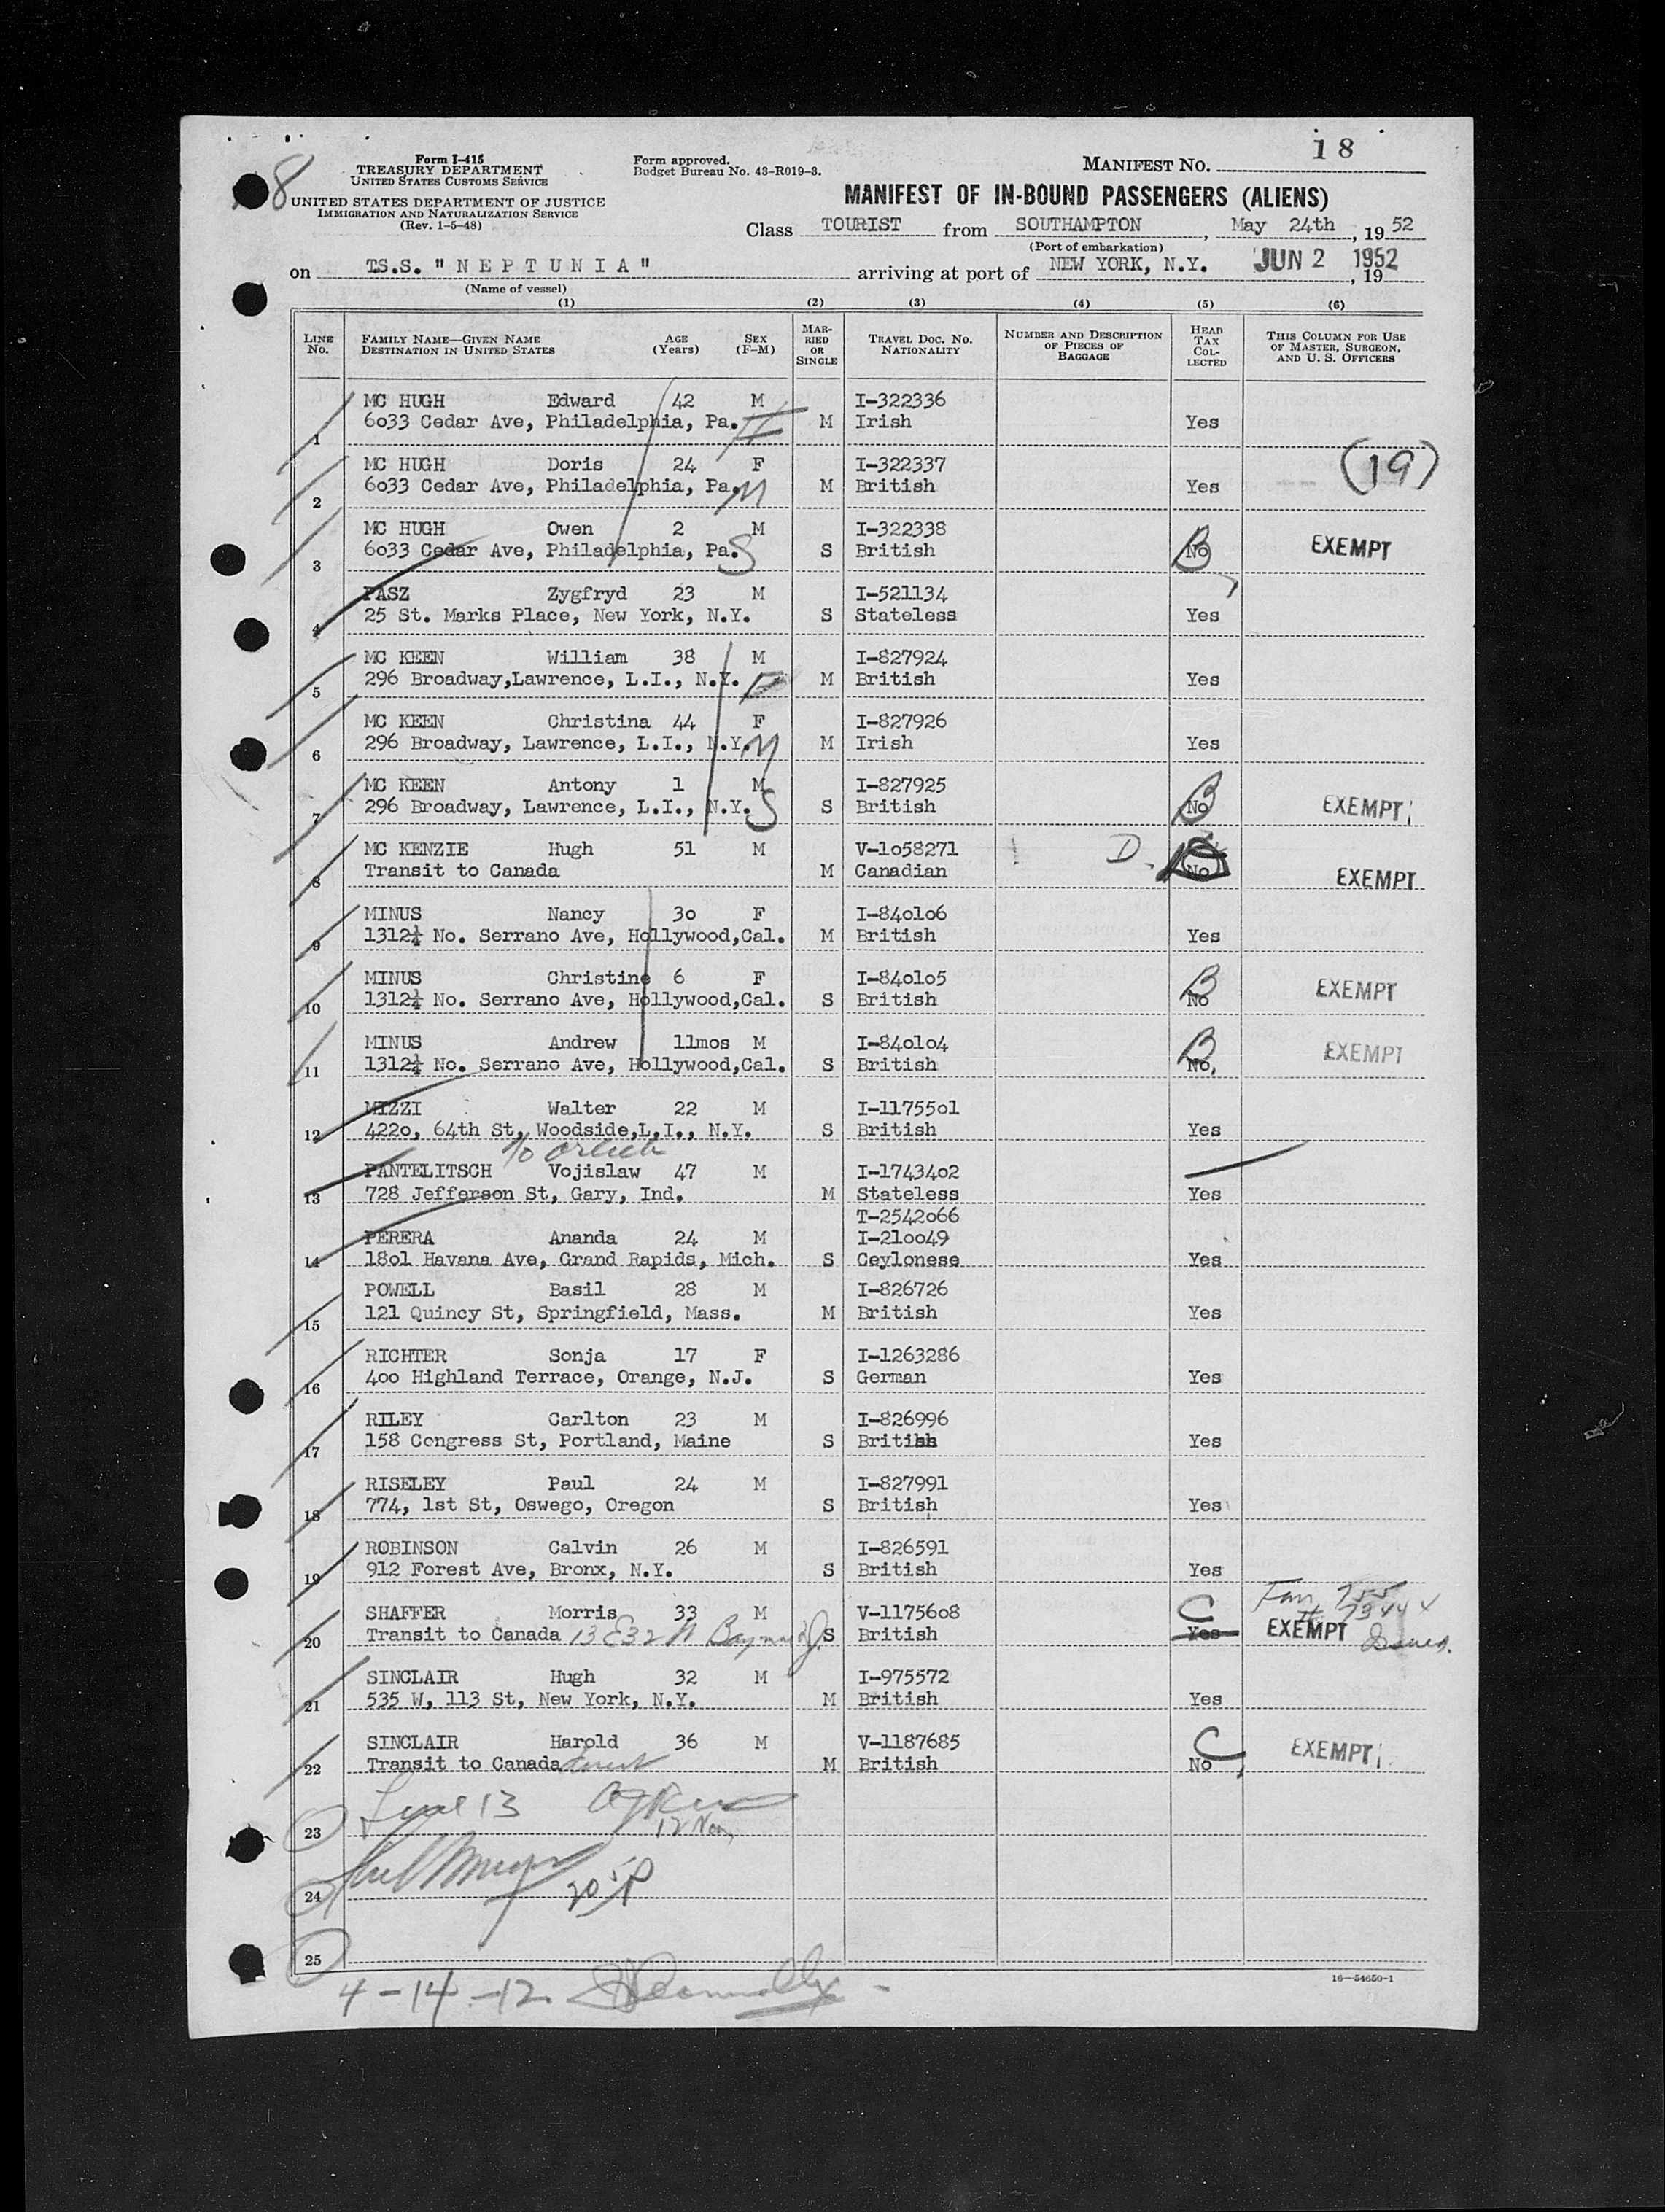 8
Form I-415
TREASURY DEPARTMENT
UNITED STATES CUSTOMS SERVICE
UNITED STATES DEPARTMENT OF JUSTICE
IMMIGRATION AND NATURALIZATION SERVICE
(Rev. 1-5-48)
Form approved.
Budget Bureau No. 43-R019-3.
MANIFEST NO. 18
MANIFEST OF IN-BOUND PASSENGERS (ALIENS)
Class TOURIST from SOUTHAMPTON, May 24th, 1952
(Port of embarkation)
on TS.S. " N E P T U N I A " arriving at port of NEW YORK, N.Y. JUN 2 1952, 19
(Name of vessel)
(1) (2) (3) (4) (5) (6)
LINE No. FAMILY NAME—GIVEN NAME DESTINATION IN UNITED STATES AGE (Years) SEX (F-M) MARRIED OR SINGLE TRAVEL DOC. NO. NATIONALITY NUMBER AND DESCRIPTION OF PIECES OF BAGGAGE HEAD TAX COLLECTED THIS COLUMN FOR USE OF MASTER, SURGEON, AND U. S. OFFICERS
MC HUGH Edward 42 M I-322336
1 6033 Cedar Ave, Philadelphia, Pa. M Irish Yes
MC HUGH Doris 24 F I-322337 (19)
2 6033 Cedar Ave, Philadelphia, Pa. M M British Yes
MC HUGH Owen 2 M I-322338
3 6033 Cedar Ave, Philadelphia, Pa. S S British No B EXEMPT
PASZ Zygfryd 23 M I-521134
4 25 St. Marks Place, New York, N.Y. S Stateless Yes
MC KEEN William 38 M I-827924
5 296 Broadway,Lawrence, L.I., N.Y. F M British Yes
MC KEEN Christina 44 F I-827926
6 296 Broadway, Lawrence, L.I., N.Y. M M Irish Yes
MC KEEN Antony 1 M I-827925
7 296 Broadway, Lawrence, L.I., N.Y. S S British No B EXEMPT
MC KENZIE Hugh 51 M V-1058271 D.
8 Transit to Canada M Canadian No EXEMPT
MINUS Nancy 30 F I-840106
9 1312¼ No. Serrano Ave, Hollywood,Cal. M British Yes
MINUS Christine 6 F I-840105
10 1312¼ No. Serrano Ave, Hollywood,Cal. S British No B EXEMPT
MINUS Andrew 11mos M I-840104
11 1312¼ No. Serrano Ave, Hollywood,Cal. S British No, B EXEMPT
MIZZI Walter 22 M I-1175501
12 4220, 64th St, Woodside,L.I., N.Y. S British Yes
PANTELITSCH Vojislaw 47 M I-1743402
13 728 Jefferson St, Gary, Ind. M Stateless Yes
T-2542066
PERERA Ananda 24 M I-210049
14 1801 Havana Ave, Grand Rapids, Mich. S Ceylonese Yes
POWELL Basil 28 M I-826726
15 121 Quincy St, Springfield, Mass. M British Yes
RICHTER Sonja 17 F I-1263286
16 400 Highland Terrace, Orange, N.J. S German Yes
RILEY Carlton 23 M I-826996
17 158 Congress St, Portland, Maine S British Yes
RISELEY Paul 24 M I-827991
18 774, 1st St, Oswego, Oregon S British Yes
ROBINSON Calvin 26 M I-826591
19 912 Forest Ave, Bronx, N.Y. S British Yes
SHAFFER Morris 33 M V-1175608 C
20 Transit to Canada S British Yes EXEMPT Issued.
SINCLAIR Hugh 32 M I-975572
21 535 W, 113 St, New York, N.Y. M British Yes
SINCLAIR Harold 36 M V-1187685 C
22 Transit to Canada M British No EXEMPT
Line 13
23 12 Noon
24
25
4-14-12
16—54650-1